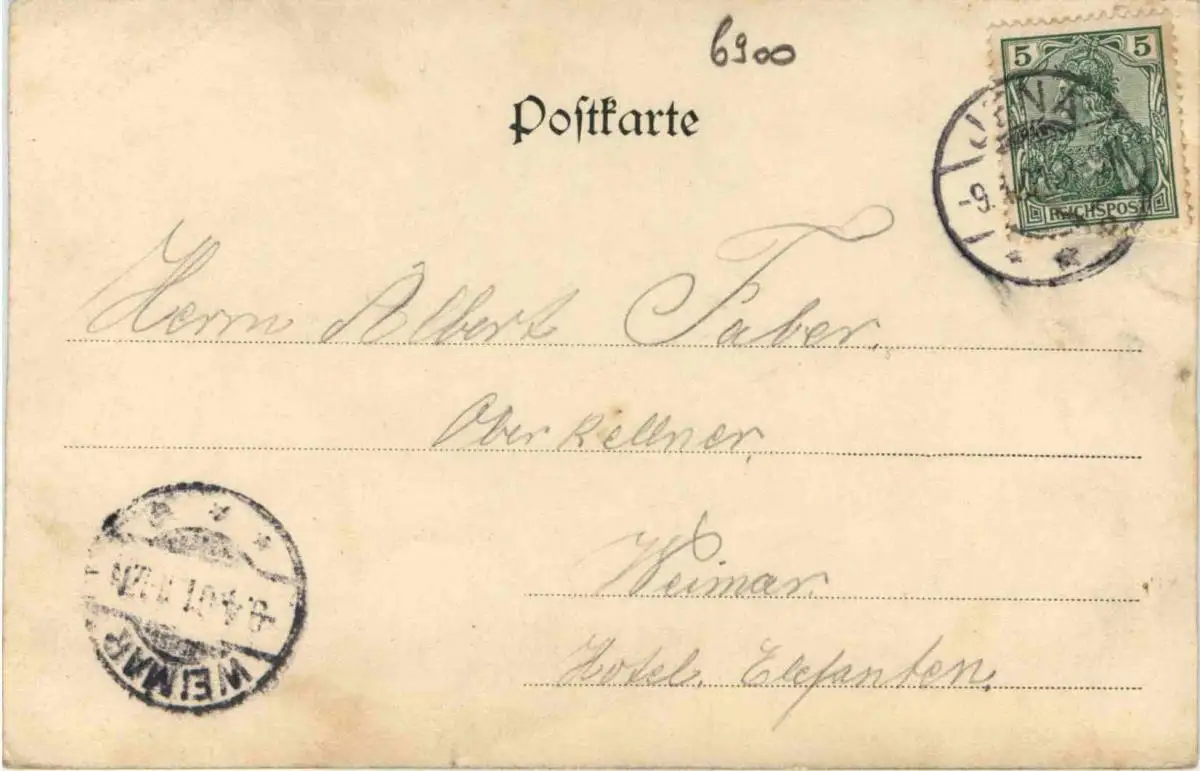 6900
5 5
REICHSPOST
JENA
-9.
Postkarte
Herrn Albert Faber.
Oberkellner,
Weimar.
Hotel. Elefanten.
WEIMAR
9.4.01.